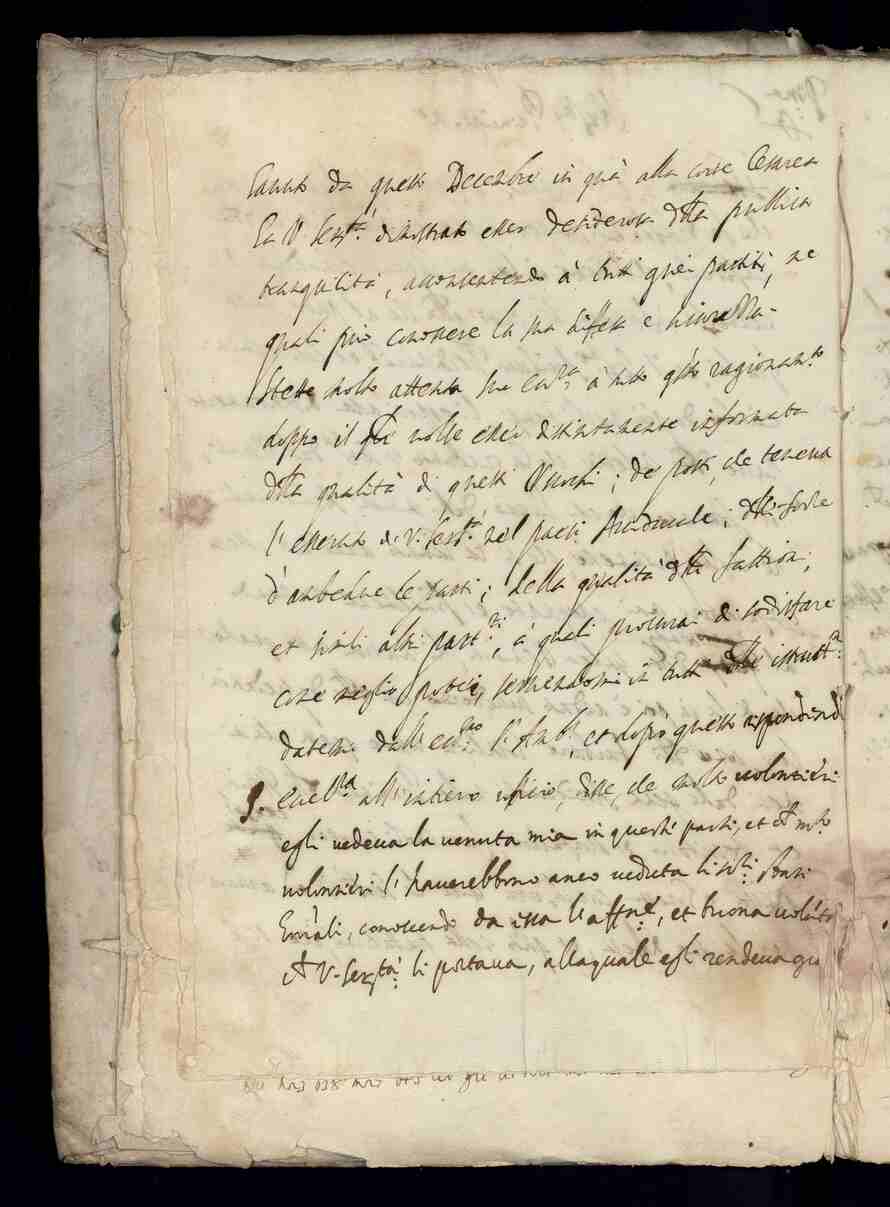 fanno da questo Decembre in quà alla corte Cesarea
La V. Ser.tà dimostrato esser desiderosa d'lla publica
tranquilità, acconsentendo à tutti quei partiti, ne
quali può conoscere la sua diffesa e sicurezza.
Stette molto attenta sua Ecc.za à tutto q'sto ragionam.to
doppo il q'le volse esser distintamente informata
d'lla qualità di questi Uscochi; de posti, che teneva
l'esercito di V. Ser.tà nel paese Arciducale; d'lle forze
d'ambedue le parti; della qualità d'lle fattioni,
et simili altri part.ri, à quali procurai di sodisfare
come meglio potei, servendomi in tutto d'lle istrutt.ni
datemi dall'ecc.mo S.r Amb.r, et dopò questo rispondendo
S. Ecc.za all'intiero ufficio, disse, che molto volontieri
egli vedeva la venuta mia in questi parti, et che m.to
volontieri l'haverebbono anco veduta li ss.ri Stati
G'nrali, conoscendo da essa l'affne, et buona volontà
che V. Ser.tà li portava, alla quale egli rendeva gra